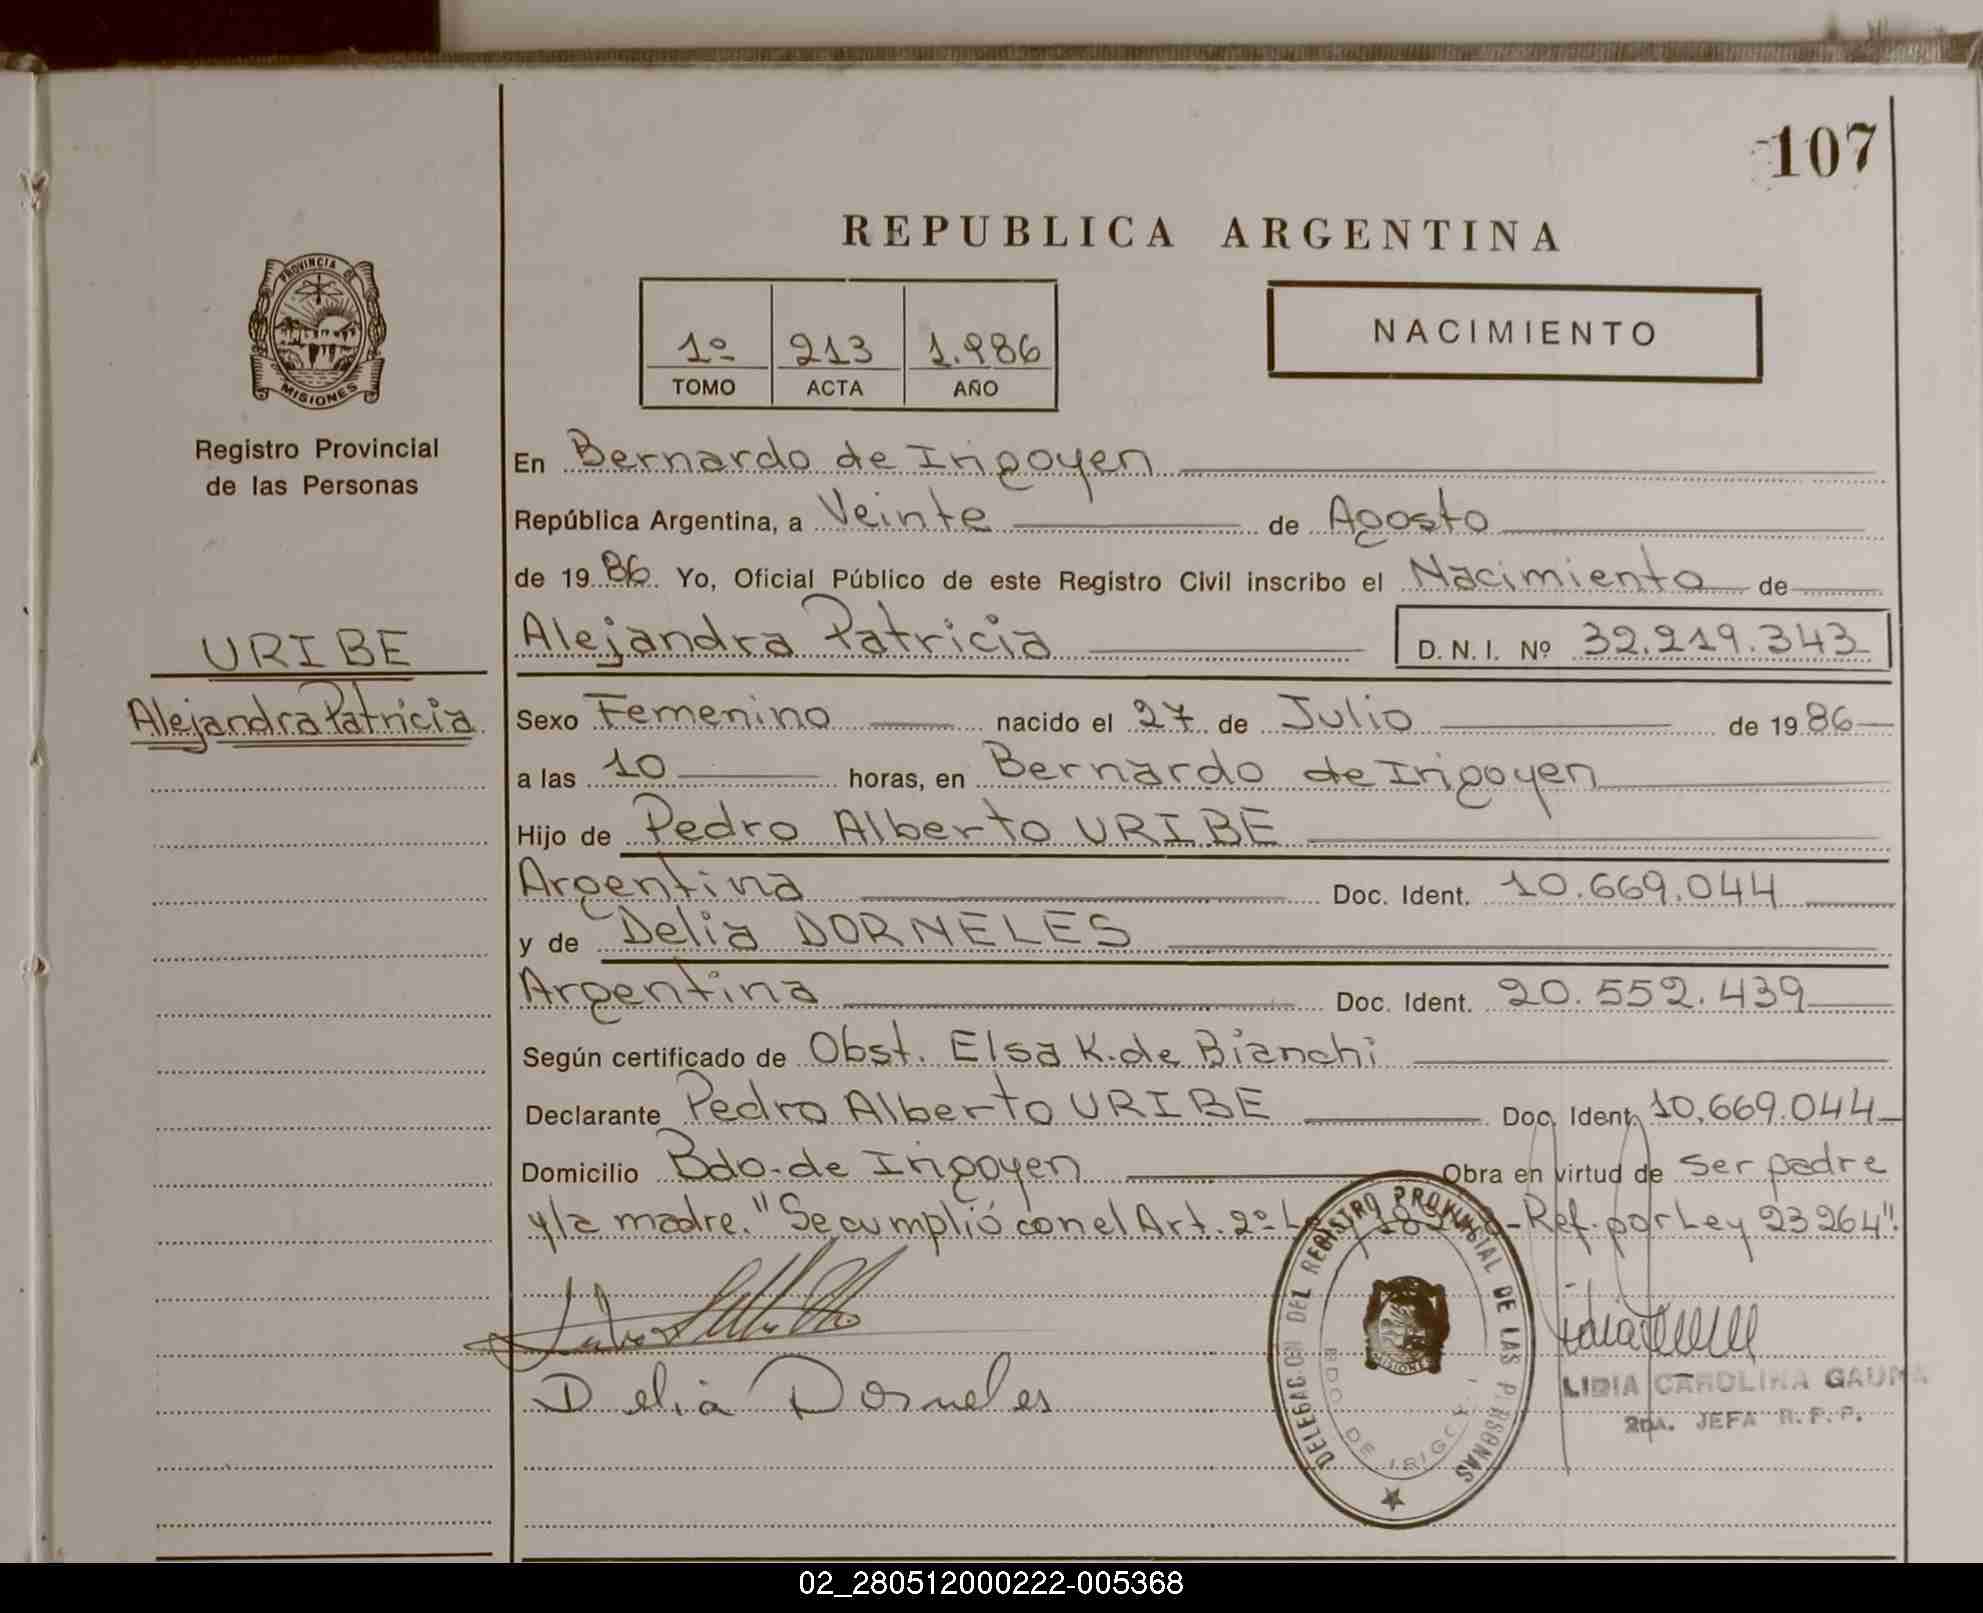 107
REPUBLICA ARGENTINA
PROVINCIA DE
MISIONES
1º 213 1.986
TOMO ACTA AÑO
NACIMIENTO
Registro Provincial
de las Personas
En Bernardo de Irigoyen
República Argentina, a Veinte de Agosto
de 19 86 Yo, Oficial Público de este Registro Civil inscribo el Nacimiento de
URIBE
Alejandra Patricia
Alejandra Patricia D. N. I. Nº 32.219.343
Sexo Femenino nacido el 27 de Julio de 19 86
a las 10 horas, en Bernardo de Irigoyen
Hijo de Pedro Alberto URIBE
Argentina Doc. Ident. 10.669.044
y de Delia DORNELES
Argentina Doc. Ident. 20.552.439
Según certificado de Obst. Elsa K. de Bianchi
Declarante Pedro Alberto URIBE Doc. Ident. 10.669.044
Domicilio Bdo. de Irigoyen Obra en virtud de ser padre
y la madre. "Se cumplió con el Art. 2º - Ref. por Ley 23264".
DELEGACION DEL REGISTRO PROVINCIAL DE LAS PERSONAS
MISIONES
BDO DE IRIGOYEN
Delia Dorneles
LIDIA CAROLINA GAUNA
2DA. JEFA R.P.P.
02_280512000222-005368